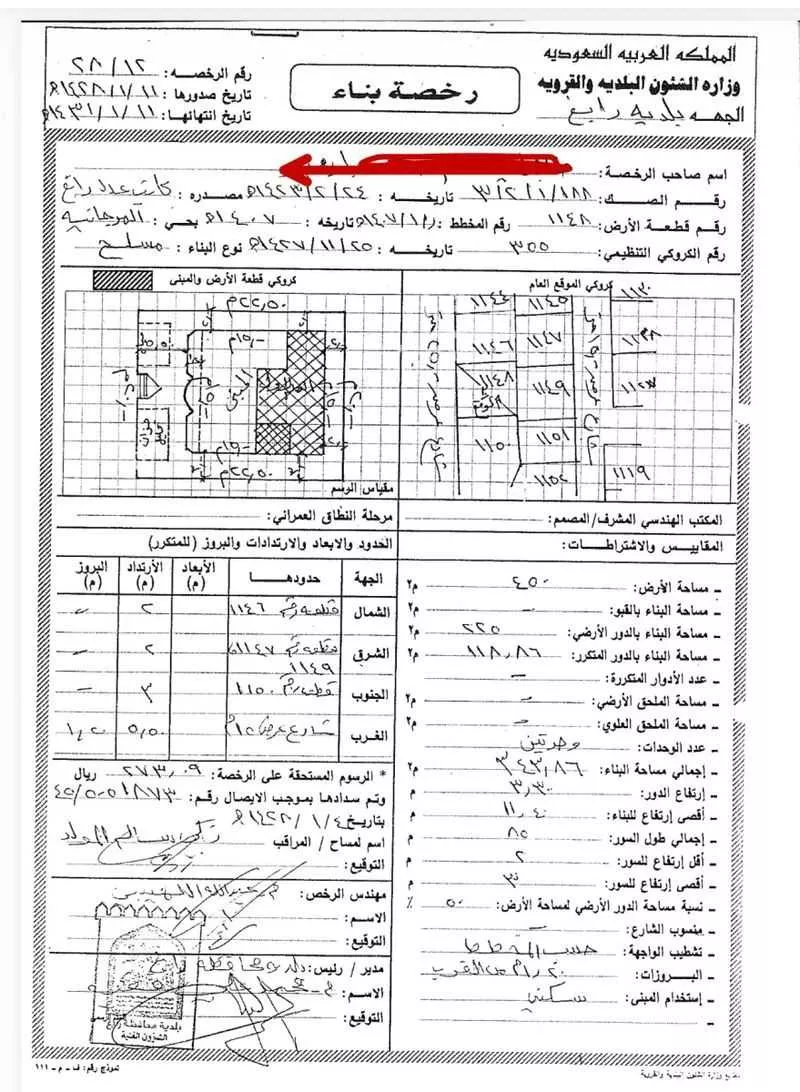 المملكه العربيه السعوديه
وزاره الشئون البلديه والقرويه
الجهه بلدية رابغ
رخصة بناء
رقم الرخصه : ٢٨/١٢
تاريخ صدورها : ١٤٢٨/١/١١هـ
تاريخ انتهائها : ١٤٣١/١/١١هـ
اسم صاحب الرخصة :
رقم الصك : ٣/٢/١/١٨٨ تاريخه : ١٤٢٣/٢/٢٤هـ مصدره : كاتب عدل رابغ
رقم قطعة الأرض : ١١٤٨ رقم المخطط : تاريخه : ١٤٠٧هـ بحي : المرجانيه
رقم الكروكي التنظيمي : ٣٥٥ تاريخه : ١٤٢٧/١١/٢٥هـ نوع البناء : مسلح
كروكي الموقع العام
١١٤٤ ١١٤٥ ١١٣٠
١١٤٦ ١١٤٧ ١١٢٨
١١٤٨ الموقع ١١٤٩ ١١٢٣
١١٥٠ ١١٥١
١١٥٢ ١١١٩
كروكي قطعة الأرض والمبنى
٢٢,٥٠م
١٥,٠٠م
المبنى
١٥,٠٠م
٢٢,٥٠م
مقياس الرسم
المكتب الهندسي المشرف/المصمم :
المقاييس والاشتراطات :
ـ مساحة الأرض: ٤٥٠ م٢
ـ مساحة البناء بالقبو: - م٢
ـ مساحة البناء بالدور الأرضي: ٢٢٥ م٢
ـ مساحة البناء بالدور المتكرر: ١١٨,٨٦ م٢
ـ عدد الأدوار المتكررة: -
ـ مساحة الملحق الأرضي: - م٢
ـ مساحة الملحق العلوي: - م٢
ـ عدد الوحدات: وحدتين
ـ إجمالي مساحة البناء: ٣٤٣,٨٦ م٢
ـ إرتفاع الدور: ٣,٣٠ م
ـ أقصى إرتفاع للبناء: ١١,٤٠ م
ـ إجمالي طول السور: ٨٥ م
ـ أقل إرتفاع للسور: ٢ م
ـ أقصى إرتفاع للسور: ٣ م
ـ نسبة مساحة الدور الأرضي لمساحة الأرض: ٥٠ ٪
ـ منسوب الشارع:
ـ تشطيب الواجهة: حسب المخطط
ـ البروزات: من الغرب
ـ إستخدام المبنى: سكني
مرحلة النطاق العمراني:
الحدود والابعاد والارتدادات والبروز (للمتكرر)
الجهة حدودها الأبعاد (م) الأرتداد (م) البروز (م)
الشمال قطعة رقم ١١٤٦ ٢ -
الشرق قطعة رقم ١١٤٧ ٢ -
١١٤٩
الجنوب قطعة رقم ١١٥٠ ٣ -
الغرب شارع عرض ١٥م ٥,٥٠ ١,٢٠
* الرسوم المستحقة على الرخصة: ٢٧٣,٠٩ ريال
وتم سدادها بموجب الايصال رقم:
بتاريخ: ١٤٢٨/١/٤هـ
اسم لمساح / المراقب
التوقيع :
مهندس الرخص :
الاسم :
التوقيع :
مدير / رئيس :
الاسم :
التوقيع :
بلدية محافظة رابغ
الشؤون الفنية
نموذج رقم: ف ـ م ـ ١١١
مطابع وزارة الشئون البلدية والقروية